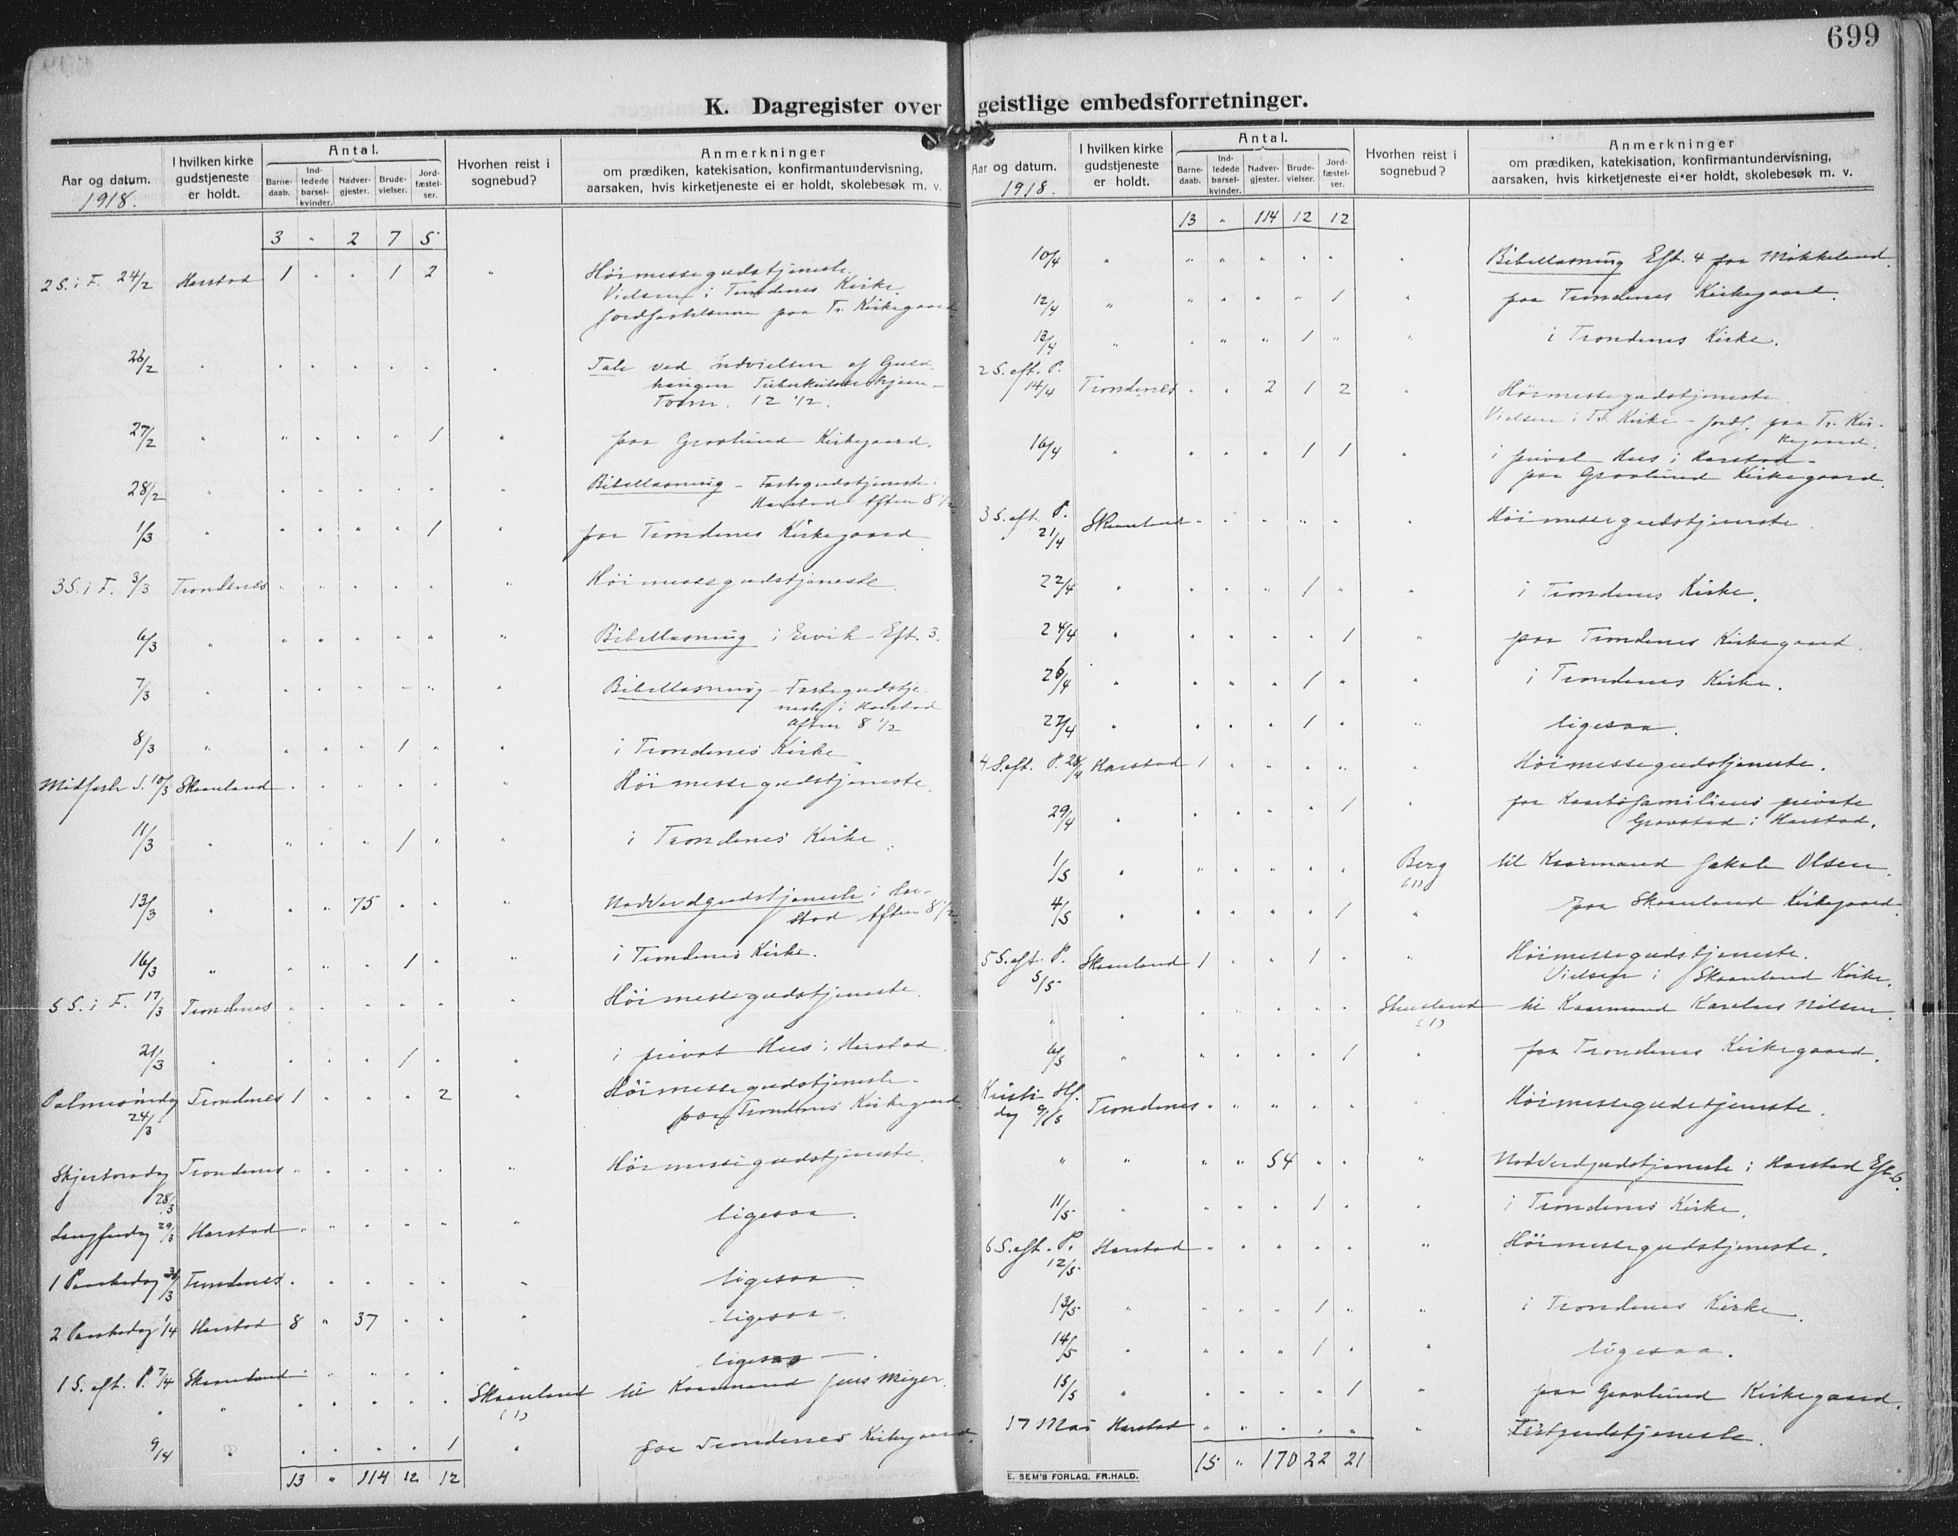 699
K. Dagregister over geistlige embedsforretninger.
Aar og datum.
1918.
I hvilken kirke gudstjeneste er holdt.
Antal.
Barnedaab.
Indledede barselkvinder.
Nadvergjester.
Brudevielser.
Jordfæstelser.
Hvorhen reist i sognebud?
Anmerkninger
om prædiken, katekisation, konfirmantundervisning,
aarsaken, hvis kirketjeneste ei er holdt, skolebesøk m. v.
3 " 2 7 5
2 S. i F. 24/2 Harstad 1 " " 1 2 " Höimessegudstjeneste.
Vielsen i Trondenes Kirke
Jordfæstelserne paa Tr. Kirkegaard
26/2 Tale ved Indvielsen af
Form. 12 1/2.
27/2 " " " " " 1 " paa Gravlund Kirkegaard.
28/2 Bibellæsning – Fastegudstjeneste i
Harstad Aften 8 1/2
1/3 " " " " " 1 " paa Trondenes Kirkegaard
3 S. i F. 3/3 Trondenes Höimessegudstjeneste
6/3 Bibellæsning i Ervik Eft. 3.
7/3 Bibellæsning – Fastegudstje-
neste i Harstad
Aften 8 1/2
8/3 " " " " 1 " " i Trondenes Kirke
Midfaste S. 10/3 Skaanland Höimessegudstjeneste.
11/3 " " " " 1 " " i Trondenes Kirke.
13/3 " " " 75 " " " Nadverdgudstjeneste i Har-
stad Aften 8 1/2
16/3 " " " " 1 " " i Trondenes Kirke.
5 S. i F. 17/3 Trondenes Höimessegudstjeneste.
21/3 " " " " 1 " " i privat Hus i Harstad.
Palmesöndag 24/3 Trondenes 1 " " " 2 " Höimessegudstjeneste –
paa Trondenes Kirkegaard.
Skjertorsdag 28/3 Trondenes Höimessegudstjeneste.
Langfredag 29/3 Harstad ligesaa.
1 Paaskedag 31/3 Trondenes ligesaa.
2 Paaskedag 1/4 Harstad 8 " 37 " " " ligesaa –
1 S. eft. P. 7/4 Skaanland ligesaa –
" " " " " " " Skaanland (1) til Kaarmand Jens Meyer.
9/4 " " " " " 1 " paa Trondenes Kirkegaard.
13 " 114 12 12
Aar og datum.
1918.
I hvilken kirke gudstjeneste er holdt.
Antal.
Barnedaab.
Indledede barselkvinder.
Nadvergjester.
Brudevielser.
Jordfæstelser.
Hvorhen reist i sognebud?
Anmerkninger
om prædiken, katekisation, konfirmantundervisning,
aarsaken, hvis kirketjeneste ei er holdt, skolebesøk m. v.
13 " 114 12 12
10/4 Bibellæsning Eft. 4 paa Møkkeland.
12/4 " " " " " 1 " paa Trondenes Kirkegaard.
13/4 " " " " 1 " " i Trondenes Kirke.
2 S. eft. P. 14/4 Trondenes " " 2 1 2 " Höimessegudstjeneste
Vielsen i Tr. Kirke – Jordf. paa Tr. Kir-
kegaard.
16/4 " " " " 1 1 " i privat Hus i Harstad –
paa Gravlund Kirkegaard.
3 S. eft. P. 21/4 Skaanland Höimessegudstjeneste
22/4 " " " " 1 " " i Trondenes Kirke.
24/4 " " " " " 1 " paa Trondenes Kirkegaard.
26/4 " " " " 1 " " i Trondenes Kirke.
27/4 " " " " 1 " " ligesaa.
4 S. eft. P. 28/4 Harstad 1 " " " " " Höimessegudstjeneste.
29/4 " " " " " 1 " paa Kaarbøfamiliens private
Gravsted i Harstad.
1/5 " " " " " " Berg (1) til Kaarmand Jakob Olsen.
4/5 " " " " " 1 " paa Skaanland Kirkegaard.
5 S. eft. P. 5/5 Skaanland 1 " " 1 " " Höimessegudstjeneste.
Vielsen i Skaanland Kirke.
" " " " " " " Skaanland (1) til Kaarmand Karelius Nilsen.
6/5 " " " " " 1 " paa Trondenes Kirkegaard.
Kristi Hf. dag 9/5 Trondenes Höimessegudstjeneste.
" " " " 54 " " " Nadverdgudstjeneste i Harstad Eft. 6.
11/5 " " " " 1 " " i Trondenes Kirke.
6 S. eft. P. 12/5 Harstad Höimessegudstjeneste.
13/5 " " " " 1 " " i Trondenes Kirke.
14/5 " " " " 1 " " ligesaa.
15/5 " " " " " 1 " paa Gravlund Kirkegaard.
17 Mai Harstad Festgudstjeneste.
15 " 170 22 21
E. SEM'S FORLAG, FR.HALD.